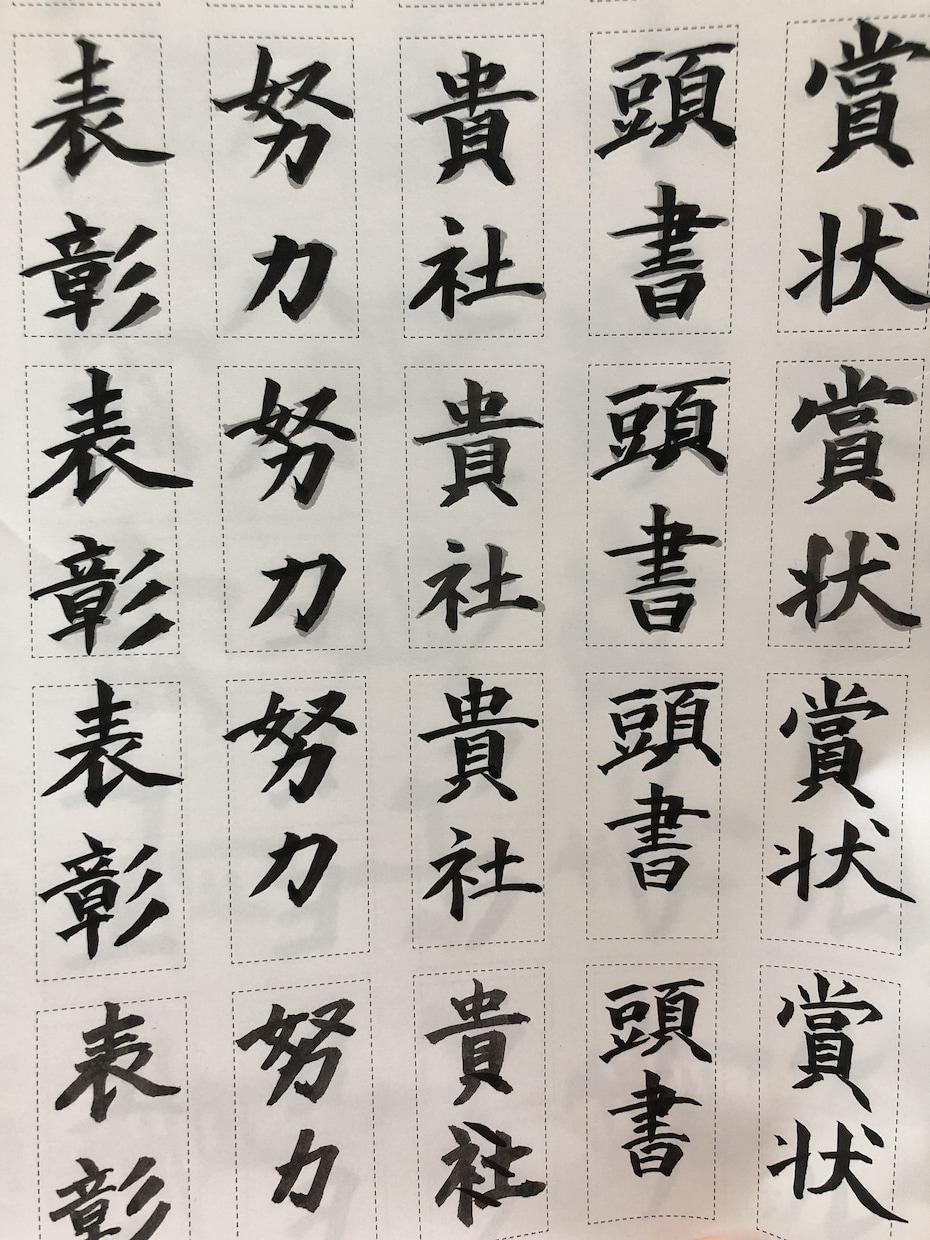 賞状
頭書
貴社
努力
表彰
賞状
頭書
貴社
努力
表彰
賞状
頭書
貴社
努力
表彰
賞状
頭書
貴社
努力
表彰